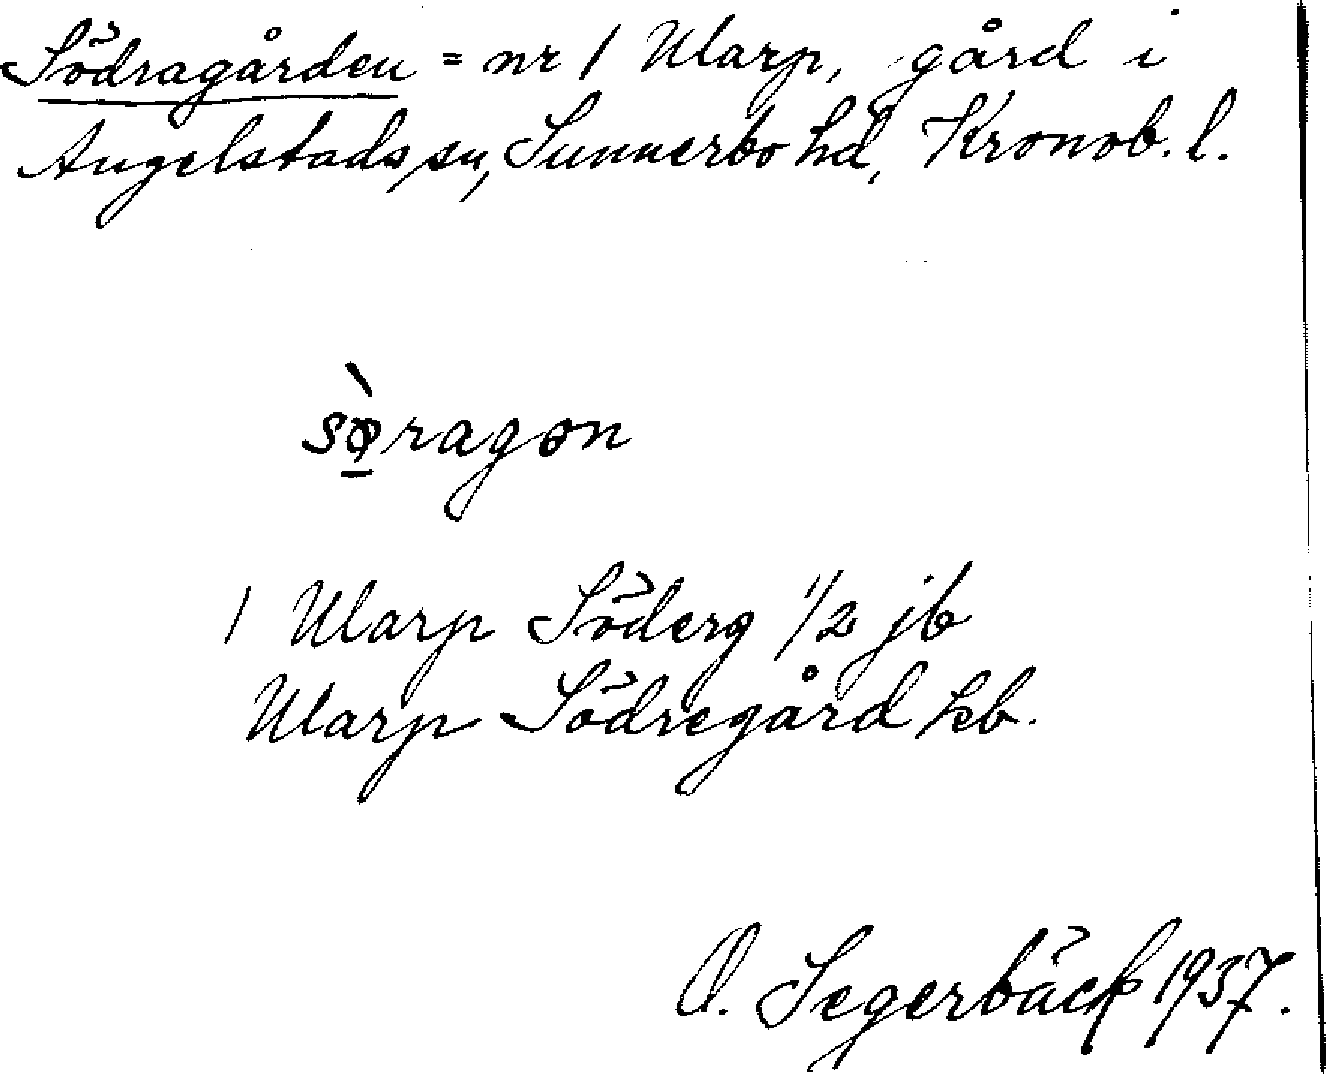 Södragården = nr 1 Ularp, gård i
Angelstads sn, Sunnerbo hd, Kronob. l.
sø̀ragon
1 Ularp Söderg 1/2 jb
Ularp Södregård kb.
O. Segerbäck 1937.